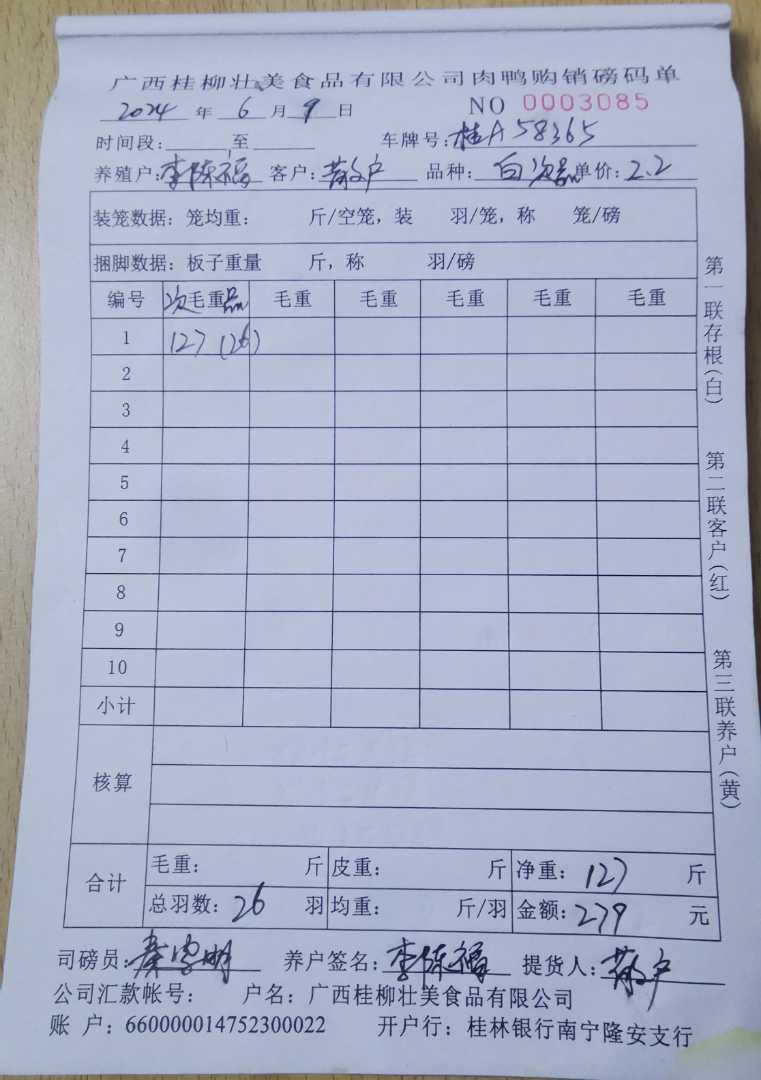 广西桂柳壮美食品有限公司肉鸭购销磅码单
2024 年 6 月 9 日 NO 0003085
时间段: 至 车牌号: 桂A58365
养殖户: 李陈福 客户: 散户 品种: 白次品 单价: 2.2
装笼数据: 笼均重: 斤/空笼, 装 羽/笼, 称 笼/磅
捆脚数据: 板子重量 斤, 称 羽/磅
编号 次毛重品 毛重 毛重 毛重 毛重 毛重
1 127 (26)
2
3
4
5
6
7
8
9
10
小计
核算
合计 毛重: 斤 皮重: 斤 净重: 127 斤
总羽数: 26 羽 均重: 斤/羽 金额: 279 元
司磅员: 养户签名: 李陈福 提货人: 散户
公司汇款帐号: 户名: 广西桂柳壮美食品有限公司
账 户: 660000014752300022 开户行: 桂林银行南宁隆安支行
第一联存根(白)
第二联客户(红)
第三联养户(黄)